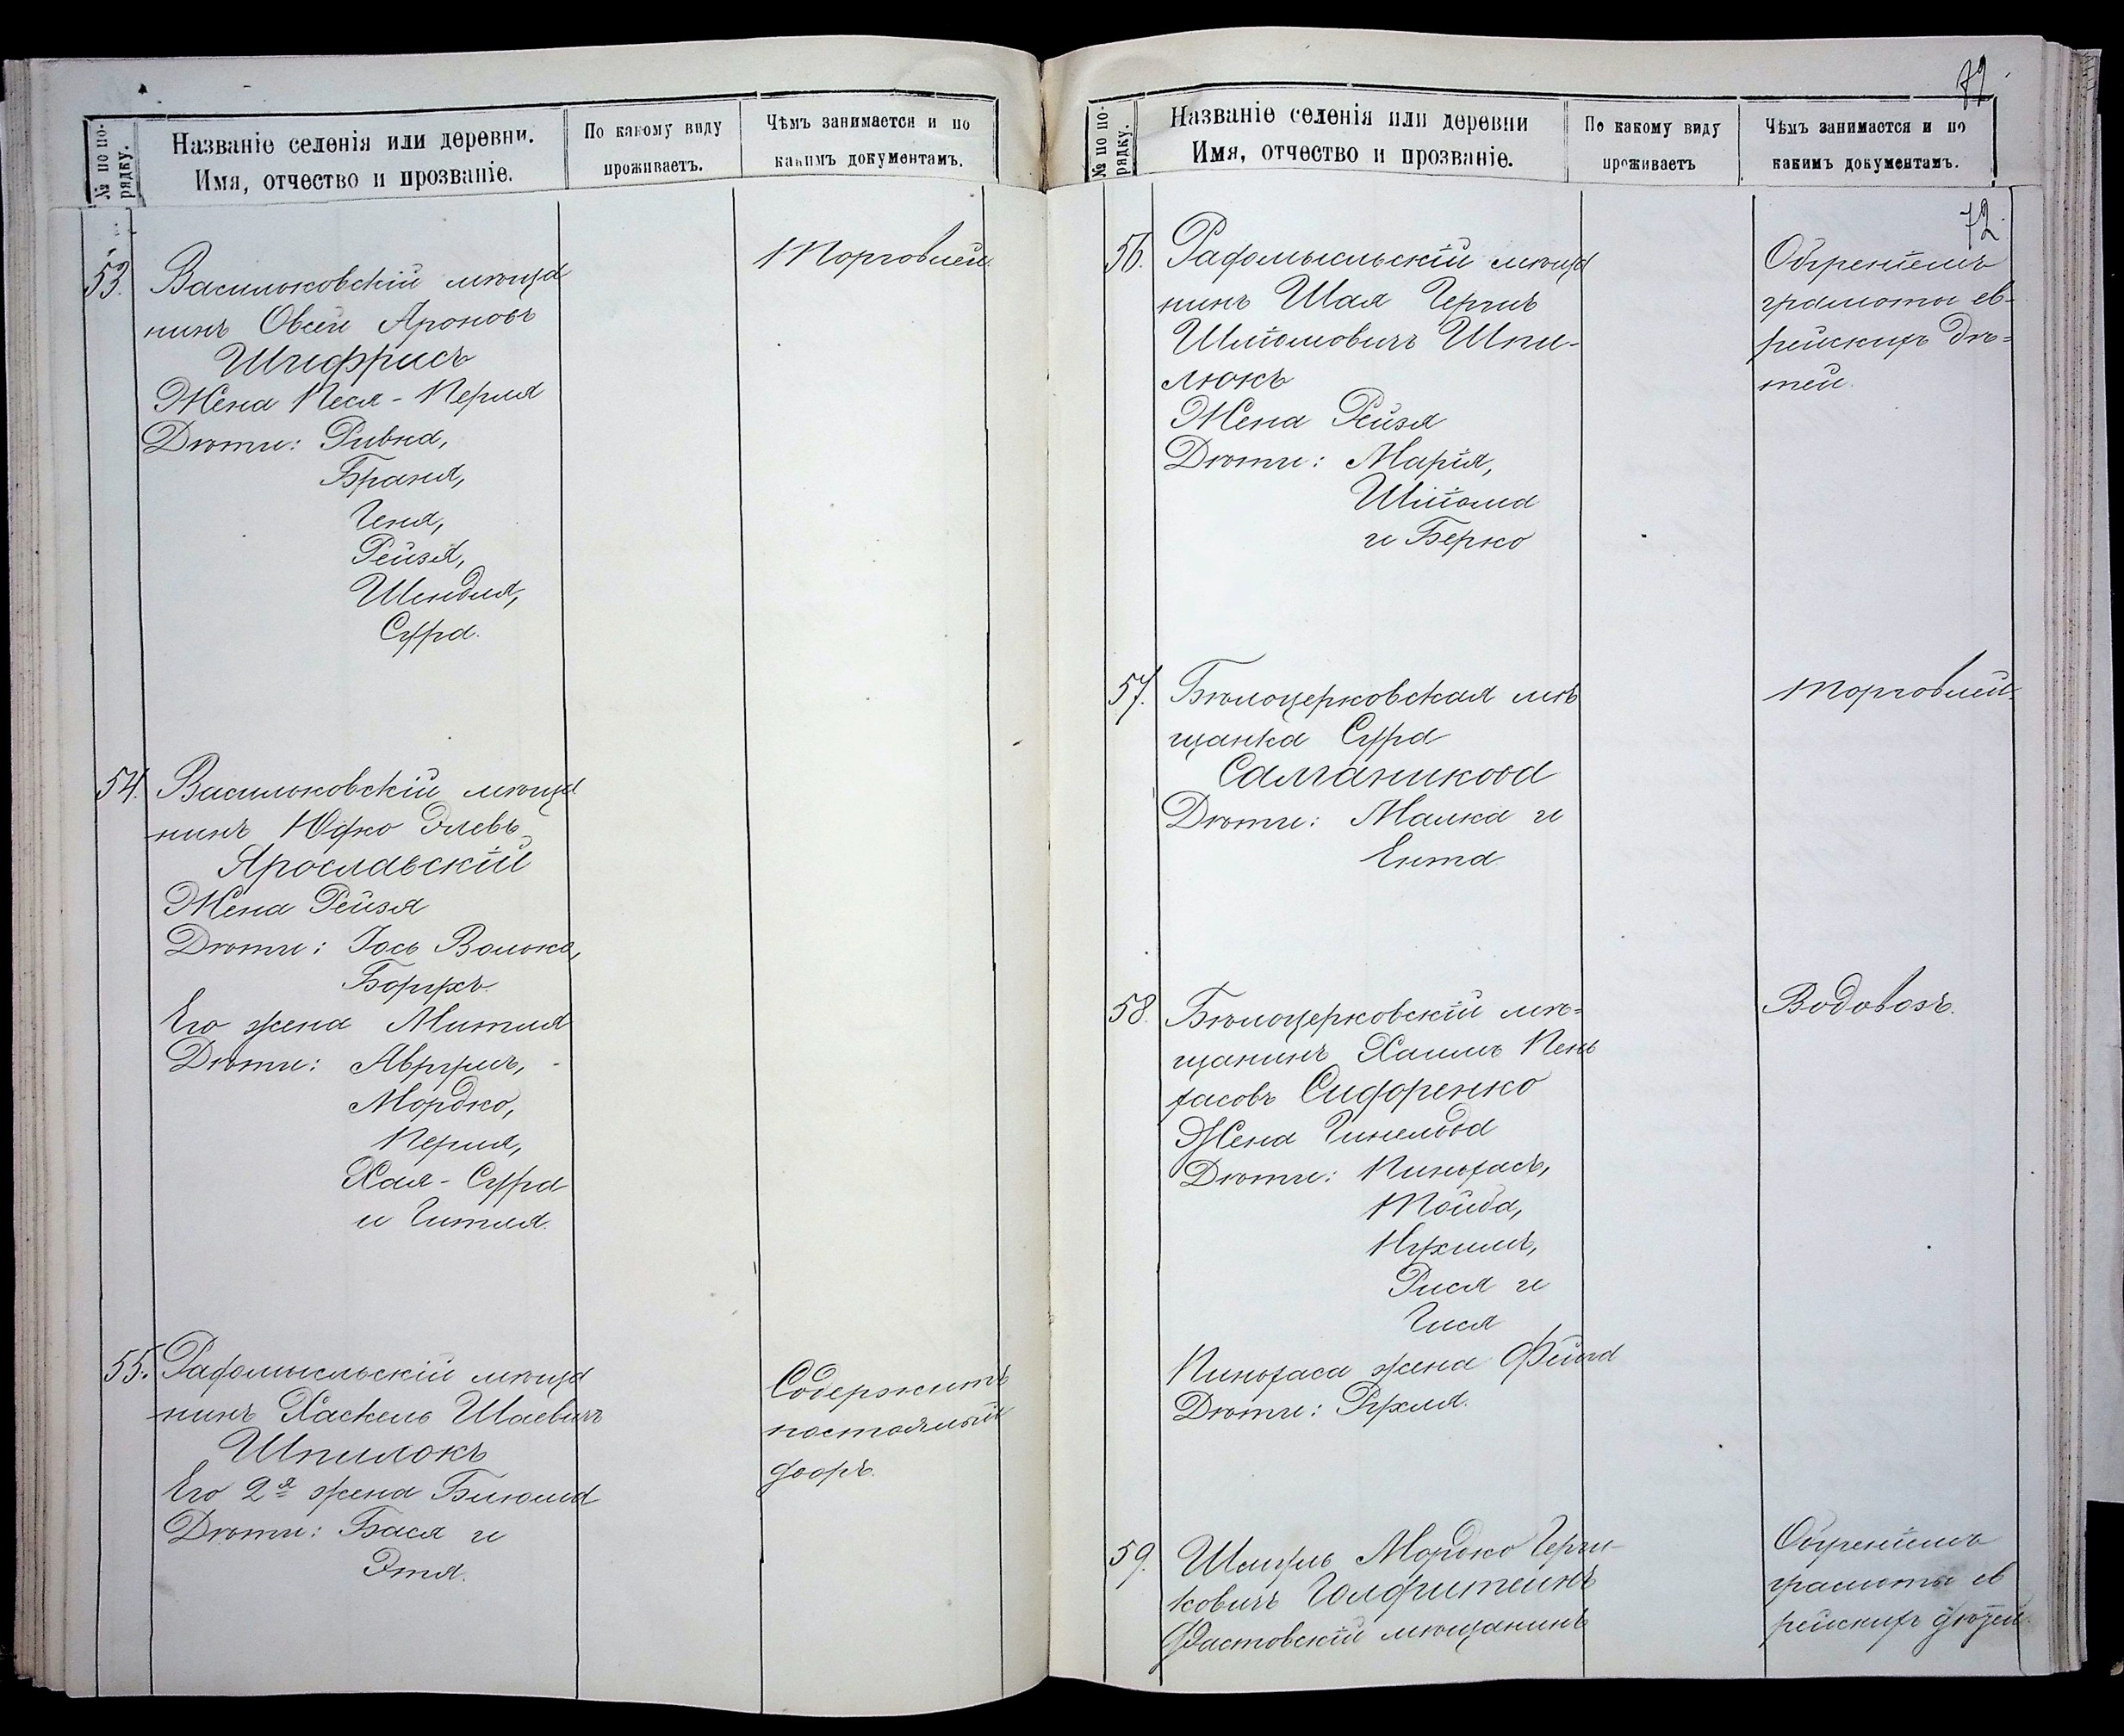 № по по-
рядку.
Названіе селенія или деревни.
Имя, отчество и прозваніе.
По какому виду
проживаетъ.
Чѣмъ занимается и по
какимъ документамъ.
53. Васильковскій мѣща
нинъ Овсей Ароновъ
Шифрисъ
Жена Песя - Перля
Дѣти: Ривка,
Браня,
Геня,
Рейзя,
Шендля,
Сура.
Торговлей.
54. Васильковскій мѣща
нинъ Юдко Элевъ
Ярославскій
Жена Рейзя
Дѣти: Іось Волько,
Борухъ.
Его жена Митля
Дѣти: Аврумъ,
Мордко,
Перля,
Хая - Сура
и Гитля.
55. Радомысльскій мѣща
нинъ Хаскель Шаевичъ
Шпилюкъ
Его 2я жена Блюма
Дѣти: Бася и
Этя.
Содержитъ
постоялый
дворъ.
72.
№ по по-
рядку.
Названіе селенія или деревни
Имя, отчество и прозваніе.
По какому виду
проживаетъ
Чѣмъ занимается и по
какимъ документамъ.
72.
56. Радомысльскій мѣща
нинъ Шая Гершъ
Шліомовичъ Шпи-
люкъ
Жена Рейзя
Дѣти: Марія,
Шліома
и Берко
Обученіемъ
грамоты ев-
рейскихъ дѣ-
тей.
57. Бѣлоцерковская мѣ
щанка Сура
Салганикова
Дѣти: Малка и
Ента
Торговлей.
58. Бѣлоцерковскій мѣ-
щанинъ Хаимъ Пень
хасовъ Сидоренко
Жена
Дѣти: Пинхасъ,
Тойба,
Нухимъ,
Рися и
Гися
Пинхаса жена Фейга
Дѣти: Рухля.
Водовозъ.
59. Шмуль Мордко Герш-
ковичъ Голдштейнъ
Фастовскій мѣщанинъ
Обученіемъ
грамоты ев
рейскихъ дѣтей.